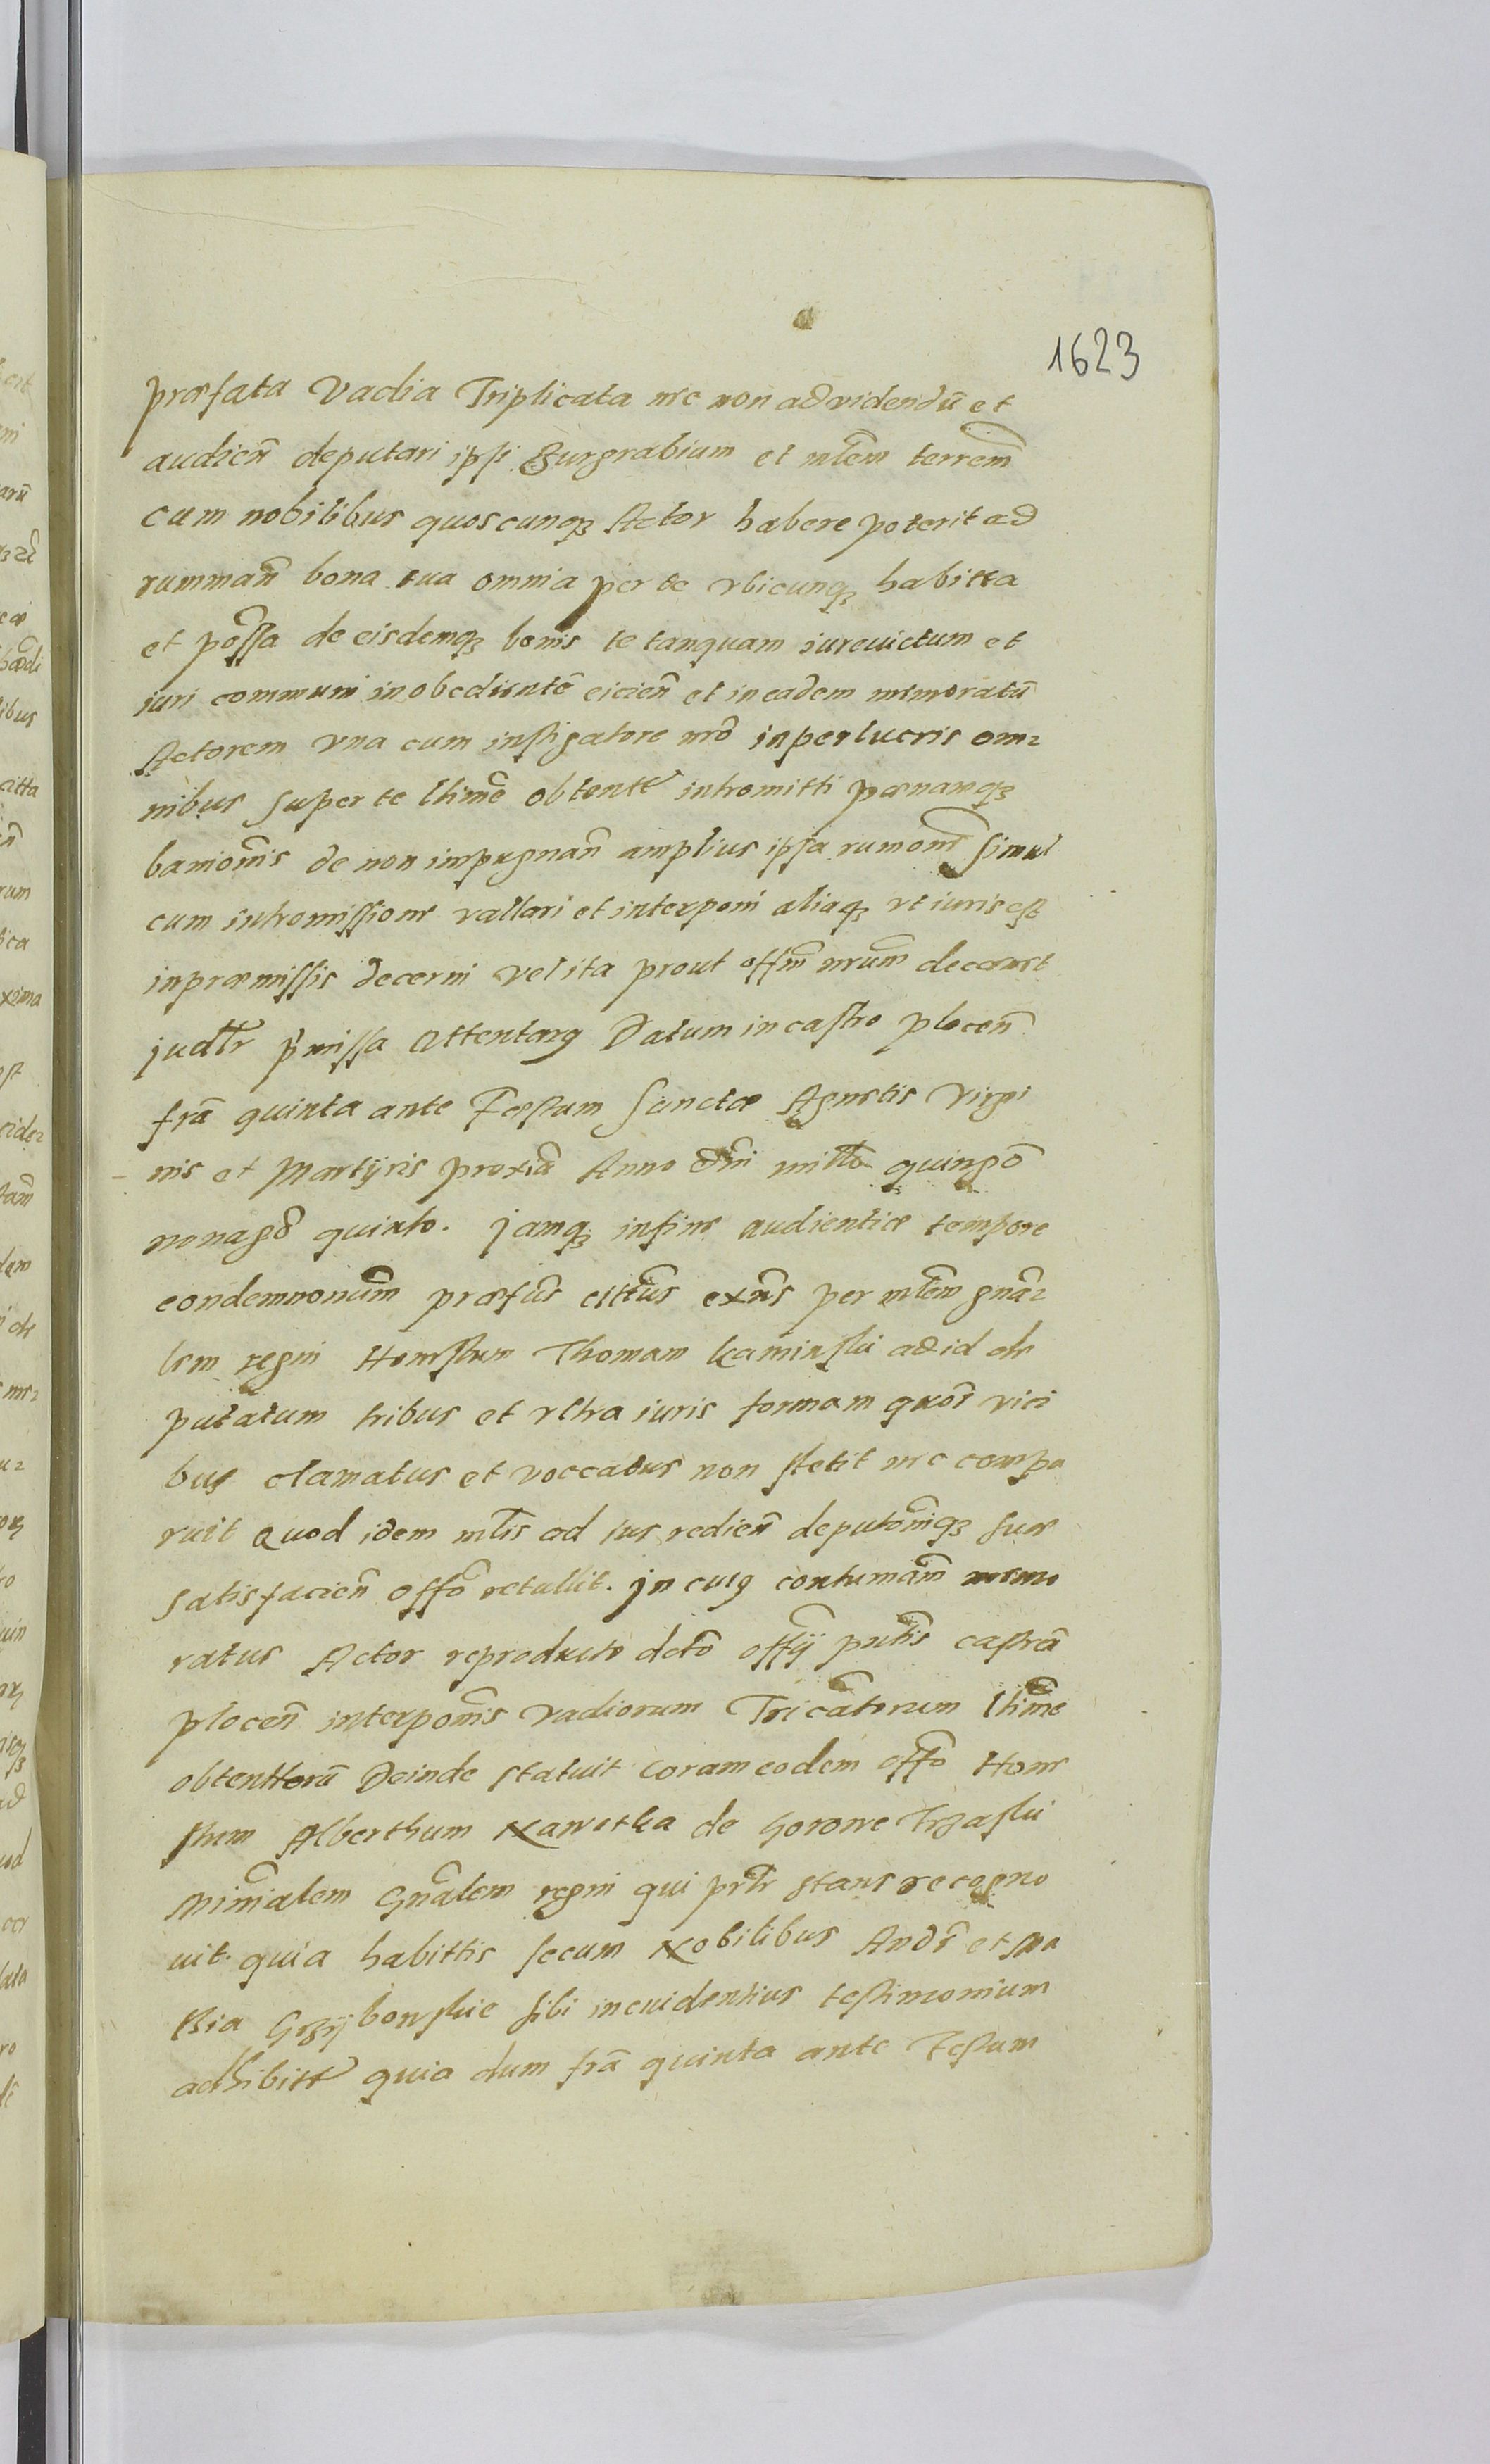 1623
præfata Vadia Triplicata nec non ad videndũ et
audieñ deputari ipsi Burgrabium et mlẽm terreñm
cum nobilibus quoscunqꝫ Actor habere poterit ad
rummañ bona tua omnia per te vbicunqꝫ habitta
et põssa de eisdemqꝫ bonis te tanquam iurevictum et
iuri communi inobedientẽ eicieñ et in eadem memoratũ
Actorem vna cum instigatore nrõ in perlucris om=
nibus super te lttimẽ obtentt intromitti pœnamqꝫ
banionĩs de non impugnañ amplius ipsa rumonẽ simul
cum intromissione vallari et interponi aliaqꝫ vt iuris est
in præmissis decerni vel ita prout offm̃ nrum̃ decreret
judttr p̃missa attentarꝯ Datum in castro ploceñ
frã quinta ante Festum Sanctæ Agnetis virgi
nis et Martÿris proxiã Anno dñi millõ quingõ
nonagõ quinto. Jamqꝫ in fine audientiæ tempore
condemnonum̃ præfũs cittũs exñs per mlẽm gnã=
lem regni Honestum Thomam Kaminski ad id de
putatum tribus et vltra iuris formam quõs vici
bus clamatus et voccatus non stetit nec compa
ruit Quod idem mlĩs ad ius redieñ deputoniqꝫ̃ suæ
satisfacieñ offõ retullit. In cuiꝯ contumam̃ memo
ratus Actor reproducto dctõ offÿ pntĩs castrẽ
ploceñ interponĩs vadiorum Tricãtorum lttimẽ
obtenttorũ Deinde statuit coram eodem offõ Hone
stum Albertum Nawotka de Gorowe Trzaski
Minĩalem Gnãlem regni qui pñtr stans recogno
uit quia habittis secum Nobilibus Andr̃ et Ma
thia Grzÿbowskie sibi in euidentius testimonium
adhibitt quia dum frã quinta ante Festum